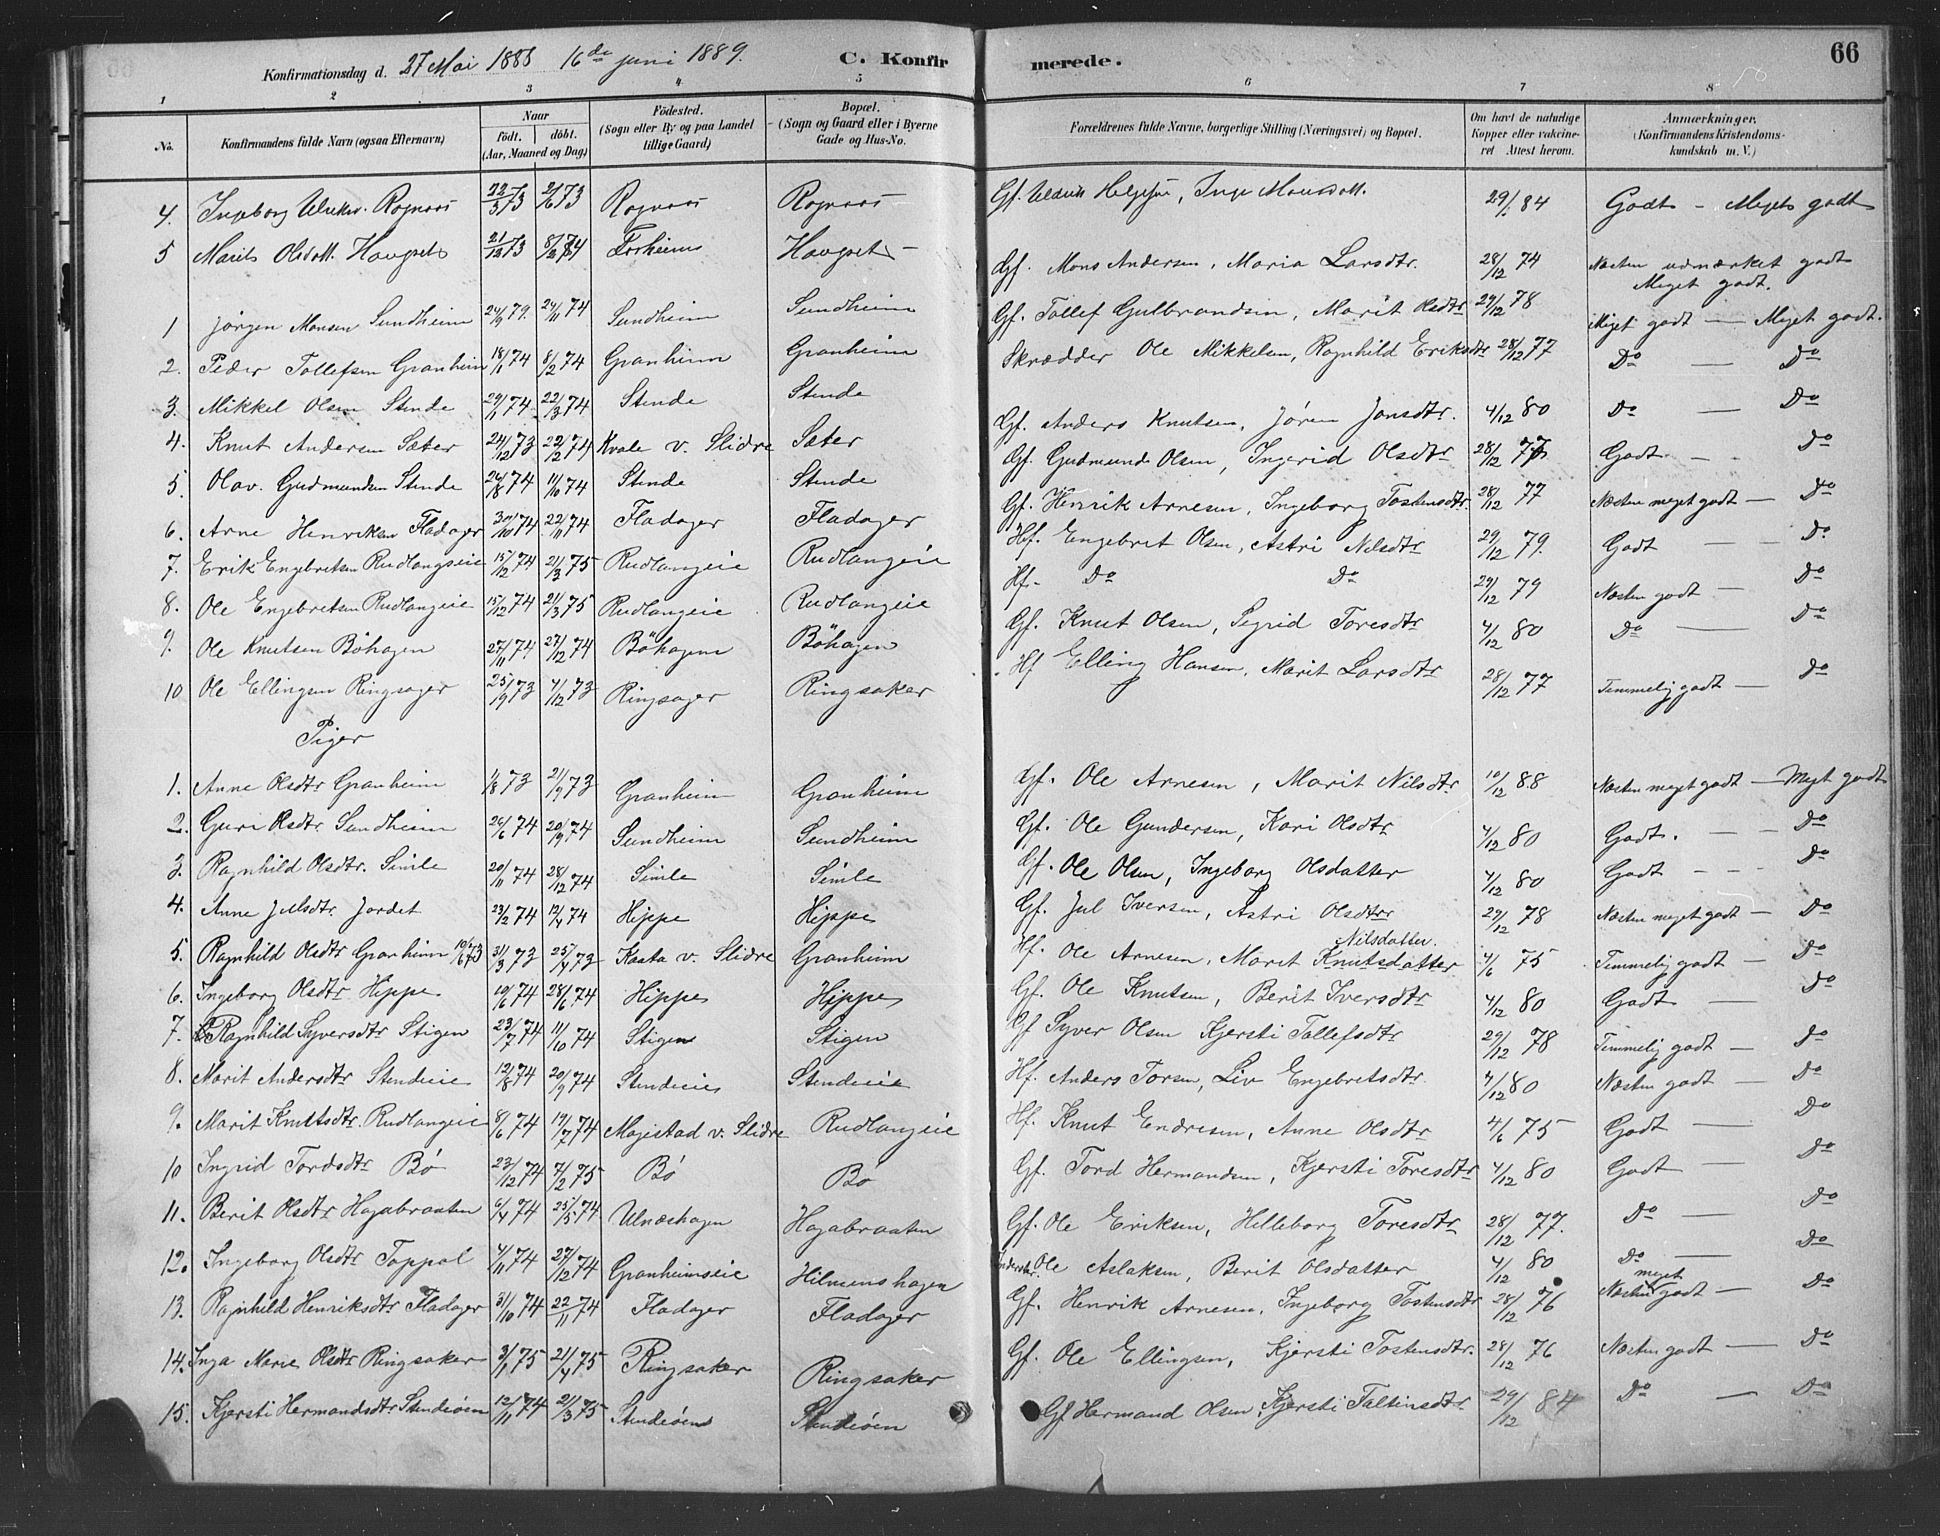 Konfirmationsdag d. 27 Mai 1888 16de juni 1889. C. Konfirmerede. 66
1 2 3 4 5 6 7 8
No. Konfirmandens fulde Navn (ogsaa Efternavn) Naar født. døbt. (Aar, Maaned og Dag) Fødested. (Sogn eller By og paa Landet tillige Gaard) Bopæl. (Sogn og Gaard eller i Byerne Gade og Hus-No. Forældrenes fulde Navne, borgerlige Stilling (Næringsvei) og Bopæl. Om havt de naturlige Kopper eller vakcineret Attest herom. Anmærkninger. (Konfirmandens Kristendomskundskab m. V.)
4. Ingeborg Ulriks. Rognaas 22/3 73 2/6 73 Rognaas Rognaas Gf. Ulrik Helgesen, Inge Monsdott. 29/1 84 Godt - Meget godt
5 Marit Olsdott. Haugset 21/12 73 8/2 74 Forheim Haugset
Gf. Mons Andersen, Maria Larsdtr. 28/12 74 Næsten udmærket godt Meget godt.
1 Jørgen Monsen Sundheim 24/9 79. 24/11 74 Sundheim Sundheim
Gf. Tollef Gulbrandsen, Marit Olsdtr 29/12 78 Meget godt — Meget godt.
2. Peder Tollefsen Granheim 18/1 74 8/2 74 Granheim Granheim
Skrædder Ole Mikkelsen, Ragnhild Eriksdtr 28/12 77 Do — Do
3. Mikkel Olsen Stende 29/1 74 22/3 74 Stende Stende
Gf. Anders Knutsen, Jøren Jonsdtr. 4/12 80 Do — Do
4. Knut Andersen Sæter 24/12 73 22/2 74 Kvale v. Slidre Sæter
Gf. Gudmund Olsen, Ingerid Olsdtr 28/12 77 Godt. — Do
5. Olav. Gudmundsen Stende 29/8 74 11/10 74 Stende Stende
Gf. Henrik Arnesen, Ingeborg Tostensdtr. 28/12 77 Næsten meget godt — Do
6. Arne Henriksen Fladager 30/10 74 22/11 74 Fladager Fladager
Hf. Engebret Olsen, Astri Nilsdtr 29/12 79. Godt — Do
7. Erik Engebretsen Rudlangseie 15/12 74 21/3 75 Rudlangeie Rudlangeie
Hf. Do Do 29/12 79 Næsten godt — Do
8. Ole Engebretsen Rudlangeie 15/12 74 21/3 75 Rudlangeie Rudlangeie
Gf. Knut Olsen, Sigrid Toresdtr 4/12 80 Do — Do
9. Ole Knutsen Bøhagen 27/11 74 27/12 74 Bøhagen Bøhagen
Hf Elling Hansen, Marit Larsdtr 28/12 77 Temmelig godt — Do
10 Ole Ellingsen Ringsager 25/9 73 7/12 73 Ringsager Ringsaker
Piger
1. Anne Olsdtr Granheim 1/8 73 21/9 73 Granheim Granheim Gf. Ole Arnesen, Marit Nilsdtr 10/12 88 Næsten meget godt — Meget godt
2. Guri Olsdtr Sundheim 26/6 74 20/9 74 Sundheim Sundheim Gf. Ole Gundersen, Kari Olsdtr 4/12 80 Godt. — Do
3. Ragnhild Olsdtr. Simle 20/11 74 28/12 74 Simle Simle Gf. Ole Olsen, Ingeborg Olsdatter 4/12 80 Godt - - Do
4. Anne Julsdtr. Jordet 23/2 74 12/4 74 Hippe Hippe Gf. Jul Iversen, Astri Olsdtr 29/12 78 Næsten meget godt — Do
5. Ragnhild Olsdtr Granheim 10/6 73 31/3 73 25/4 73 Kasta v. Slidre Granheim Hf. Ole Arnesen, Marit Knutsdatter Nilsdatter. 4/6 75 Temmelig godt — Do
6. Ingeborg Olsdtr Hippe 10/6 74 28/6 74 Hippe Hippe Gf. Ole Knutsen, Berit Iversdtr 4/12 80 Godt — Do
7. Ragnhild Syversdtr Stigen 23/7 74 11/10 74 Stigen Stigen Gf Syver Olsen Kjersti Tollefsdtr 29/12 78 Temmelig godt — Do
8. Marit Andersdtr Stendeie 12/8 74 20/9 74 Stendeie Stendeie Hf. Anders Torsen, Liv Engebretsdtr. 4/12 80 Næsten godt — Do
9. Marit Knutsdtr. Rudlangeie 8/6 74 19/7 74 Majestad v. Slidre Rudlangeie Hf. Knut Endresen, Anne Olsdtr 4/6 75 Godt — Do
10 Ingrid Tordsdtr Bø 23/12 74 7/2 75 Bø Bø Gf. Tord Hermandsen, Kjersti Toresdtr 4/12 80 Godt — Do
11. Berit Olsdtr Hagabraaten 6/4 74 25/5 74 Ulnæshagen Hagabraaten Gf. Ole Eriksen, Hilleborg Toresdtr 28/12 77. Do — Do
12. Ingeborg Olsdtr Toppol 4/11 74 27/12 74 Granheimseie Hilmenshagen Inderster. Ole Aslaksen, Berit Olsdatter 4/12 80 Do — Do
13. Ragnhild Henriksdtr Fladager 31/10 74 22/11 74 Fladager Fladager Gf. Henrik Arnesen, Ingeborg Tostensdtr 28/12 76 Næsten meget godt — Do
14. Inga Marie Olsdtr Ringsaker 3/1 75 21/4 75 Ringsaker Ringsaker Gf. Ole Ellingsen, Kjersti Tostensdtr. 28/12 76 Næsten godt — Do
15. Kjersti Hermandsdtr Stendeøen 12/11 74 21/3 75 Stendeøen Stendeøen Gf Hermand Olsen Kjersti Faltinsdtr 29/12 84 Do — Do